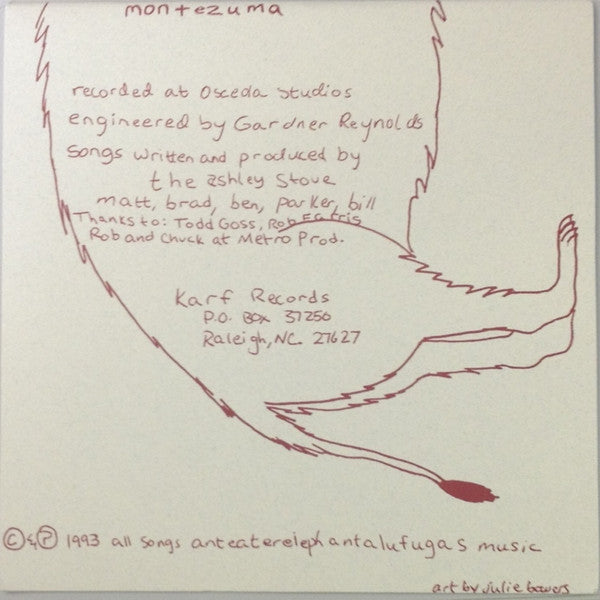 montezuma
recorded at Osceda Studios
engineered by Gardner Reynolds
songs written and produced by
the ashley Stove
matt, brad, ben, parker, bill
Thanks to: Todd Goss, Rob Farris
Rob and Chuck at Metro Prod.
Karf Records
P.O. Box 37256
Raleigh, NC 27627
© & ℗ 1993 all songs anteaterelephantalufugas music
art by julie bowers